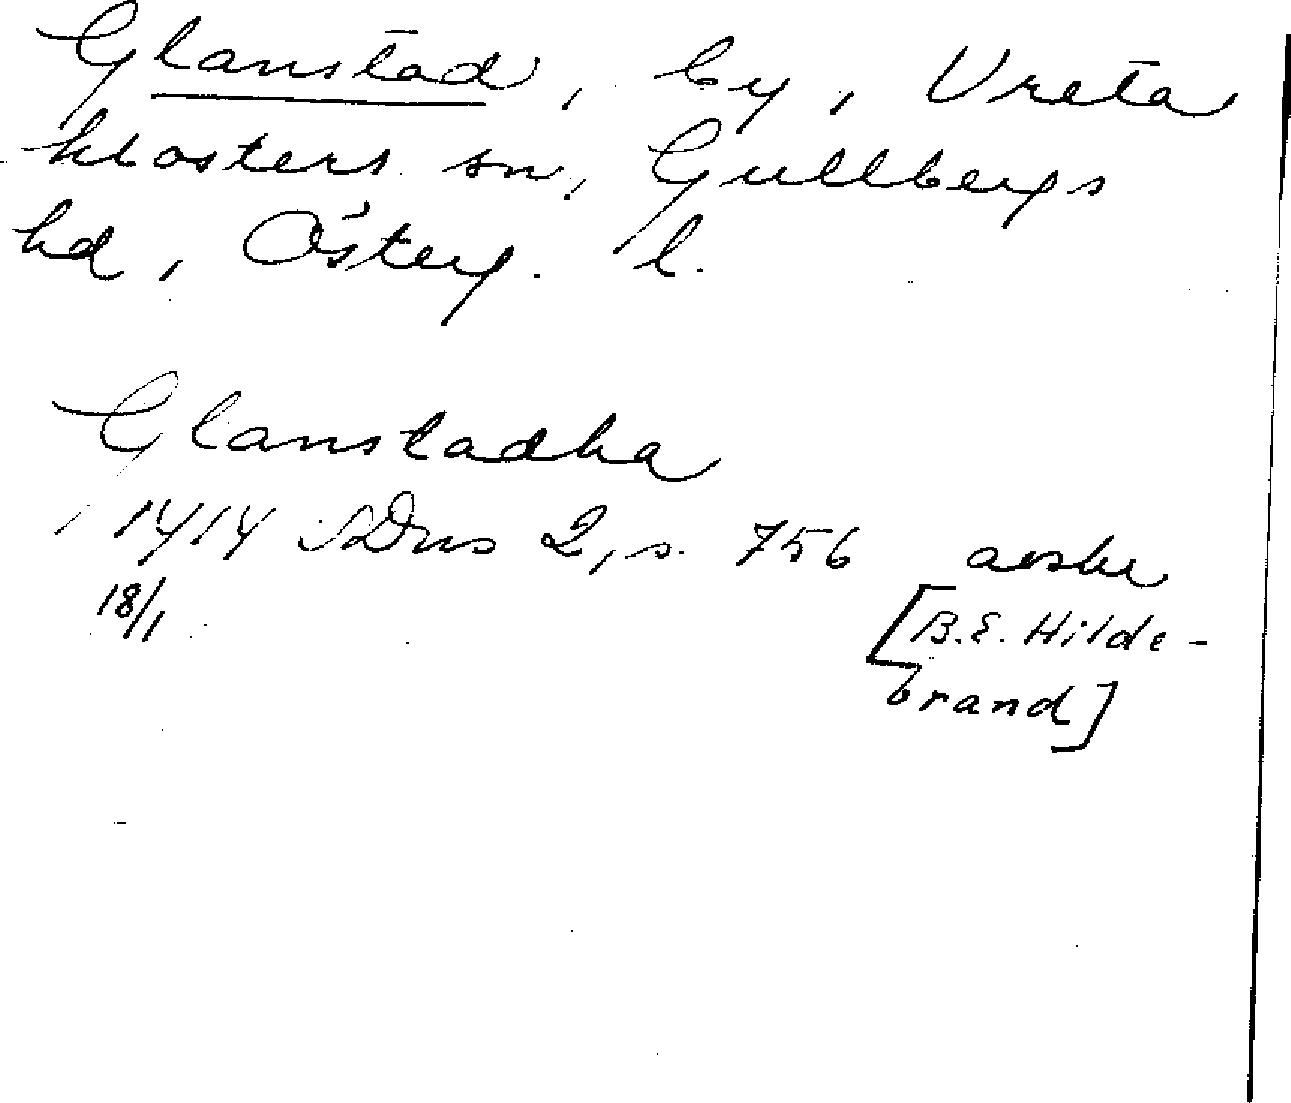 Glanstad, by, Vreta
klosters sn, Gullbergs
hd, Österg. l.
Glanstadha
1414 SDns 2, s. 756 avskr
18/1
[B.E. Hilde-
brand]